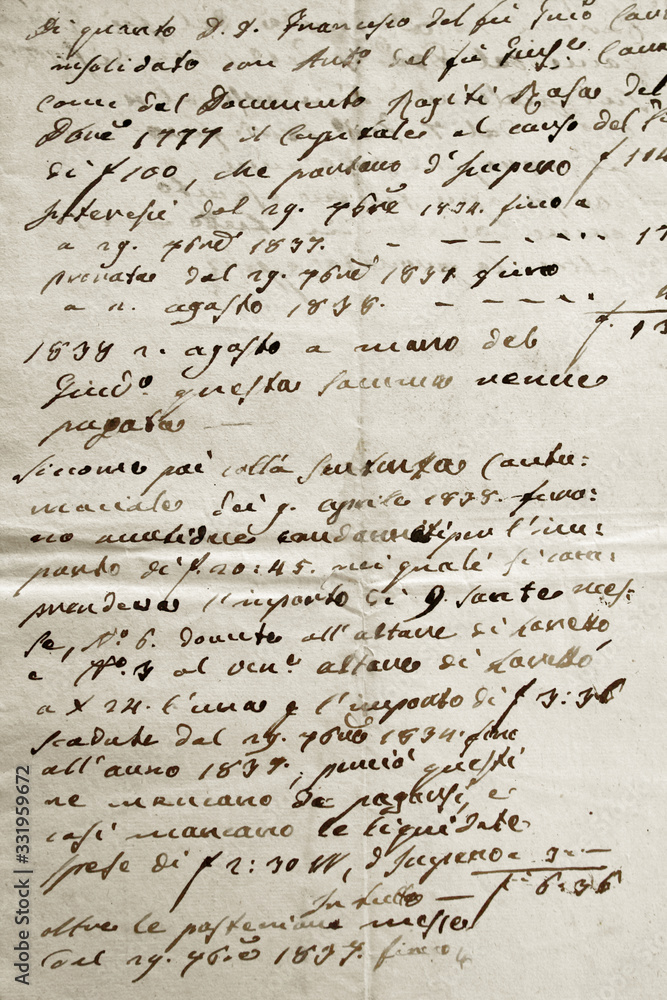 Di quanto D. S. Francesco del fu Gio
insolidato con Ant.o del fu Gius.e
come dal Documento Rogiti Rosa del
1777 il Capitale al censo del
di f 100, che portano d'Impero f 114
Interessi dal 29. 7bre 1834. fino a
a 29. 7bre 1837. - - - - - - 17
prorata dal 29. 7bre 1837 fino
a 2. agosto 1838. - - - - -
f. 13
1838 2. agosto a mano del
Giud.o questa somma venne
pagata —
Siccome poi colla Sentenza Contu:
maciale dei 9. aprile 1838. furo:
no condannati per l'im:
porto di f. 20:45. nei quali si com:
prendeva l'importo di 9 Sante mes:
se, N.o 6. dovute all'altare di Loretto,
e N.o 3 al Ven.e altare di Loretto
a X 24. l'una l'importo di f 3:36
scadute dal 29. 7bre 1834. fino
all'anno 1837, questi
ne mancano da pagarsi, e
così mancano le liquidate
spese di f 2:30 W, d'Impero 3 —
f 6:36
In tutto —
oltre le posteriori messe
dal 29. 7bre 1837. fino
Adobe Stock | #331959672
Adobe Stock